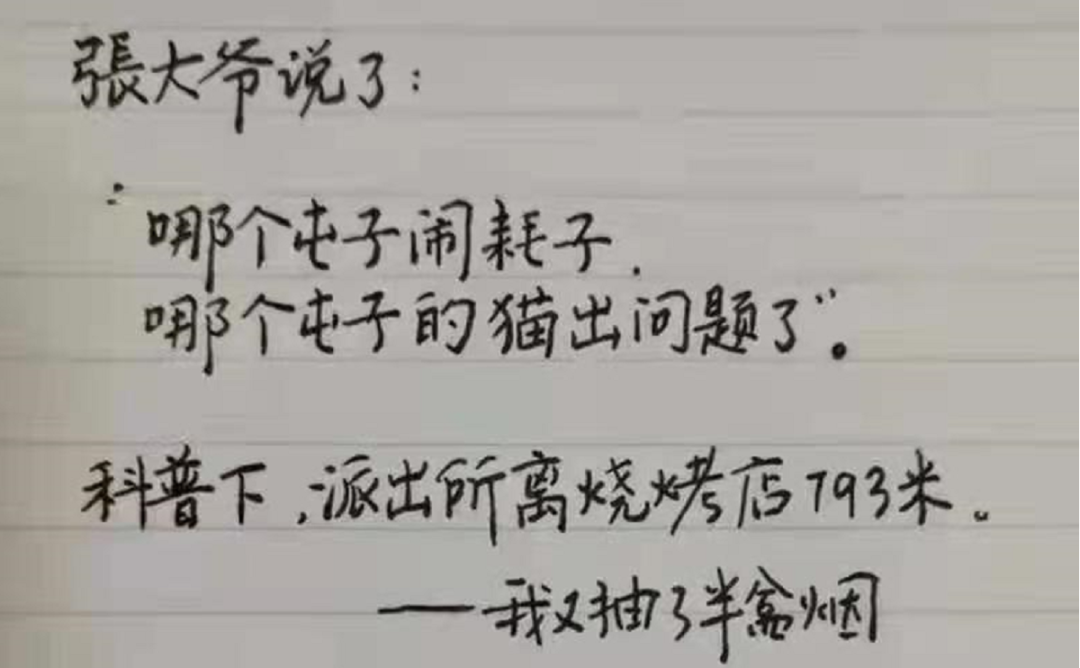 張大爷说了：
“哪个屯子闹耗子.
哪个屯子的猫出问题了”。
科普下,派出所离烧烤店793米。
——我又抽了半盒烟